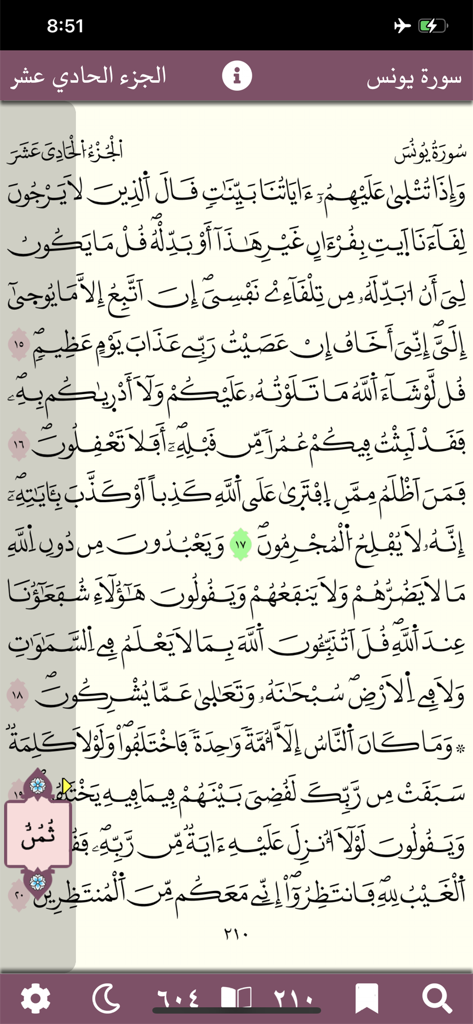 8:51
سورة يونس
الجزء الحادي عشر
سُورَةُ يُونُسَ
اَلْجُزْءُ اَلْحَادِي عَشَرَ
وَإِذَا تُتْلَىٰ عَلَيْهِمُۥٓ ءَايَاتُنَا بَيِّنَٰتٖ قَالَ اَلذِينَ لَا يَرْجُونَ
لِقَآءَنَا اَ۪يتِ بِقُرْءَانٍ غَيْرِ هَٰذَآ أَوْ بَدِّلْهُۖ قُلْ مَا يَكُونُ
لِيَ أَنُ ا۟بَدِّلَهُۥ مِن تِلْقَآءِےْ نَفْسِيَۖ إِنَ اَتَّبِعُ إِلَّا مَا يُوحَىٰٓ
إِلَيَّۖ إِنِّيَ أَخَافُ إِنْ عَصَيْتُ رَبِّے عَذَابَ يَوْمٍ عَظِيمٖۖ ١٥
قُل لَّوْ شَآءَ اَللَّهُ مَا تَلَوْتُهُۥ عَلَيْكُمْ وَلَآ أَدْرَىٰكُم بِهِۦ
فَقَدْ لَبِثْتُ فِيكُمْ عُمُراٗ مِّن قَبْلِهِۦٓۖ أَفَلَا تَعْقِلُونَۖ ١٦
فَمَنَ اَظْلَمُ مِمَّنِ اِفْتَرَىٰ عَلَى اَللَّهِ كَذِباً اَوْ كَذَّبَ بِـَٔايَٰتِهِۦٓ
إِنَّهُۥ لَا يُفْلِحُ اُلْمُجْرِمُونَۖ ١٧ وَيَعْبُدُونَ مِن دُونِ اِللَّهِ
مَا لَا يَضُرُّهُمْ وَلَا يَنفَعُهُمْ وَيَقُولُونَ هَٰٓؤُلَآءِ شُفَعَٰٓؤُنَا
عِندَ اَللَّهِۖ قُلَ اَتُنَبِّـُٔونَ اَللَّهَ بِمَا لَا يَعْلَمُ فِے اِلسَّمَٰوَٰتِ
وَلَا فِے اِلَارْضِۖ سُبْحَٰنَهُۥ وَتَعَٰلَىٰ عَمَّا يُشْرِكُونَۖ ١٨
* وَمَا كَانَ اَلنَّاسُ إِلَّآ أُمَّةٗ وَٰحِدَةٗ فَاخْتَلَفُواْۖ وَلَوْلَا كَلِمَةٞ
سَبَقَتْ مِن رَّبِّكَ لَقُضِيَ بَيْنَهُمْ فِيمَا فِيهِ ١٩
وَيَقُولُونَ لَوْلَآ أُنزِلَ عَلَيْهِ ءَايَةٞ مِّن رَّبِّهِۦ
اَلْغَيْبُ لِلهِ فَانتَظِرُوٓاْ إِنِّے مَعَكُم مِّنَ اَلْمُنتَظِرِينَۖ ٢٠
ثُمُن
٢١٠
٦٠٤
٢١٠